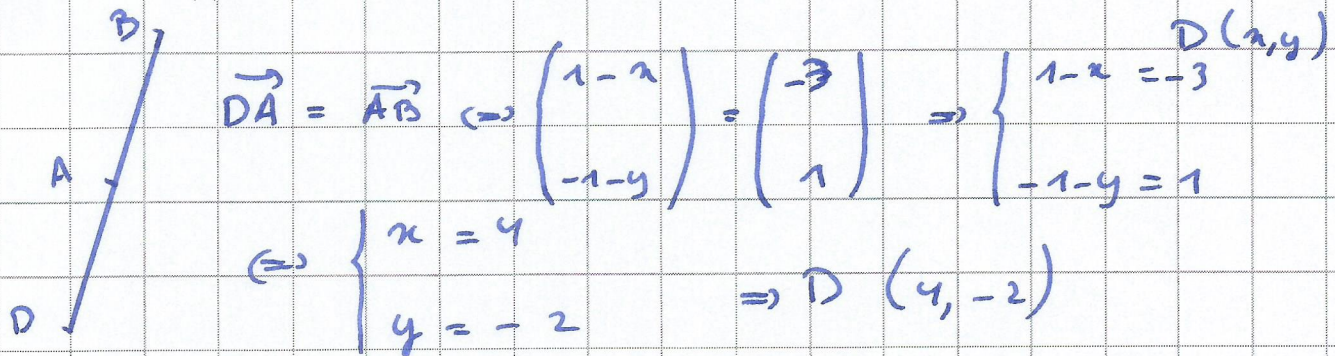 B
D(x,y)
A
D
\overrightarrow{DA} = \overrightarrow{AB} <=> \begin{pmatrix} 1-x \\ -1-y \end{pmatrix} = \begin{pmatrix} -3 \\ 1 \end{pmatrix} => \begin{cases} 1-x = -3 \\ -1-y = 1 \end{cases}
<=> \begin{cases} x = 4 \\ y = -2 \end{cases} => D (4, -2)